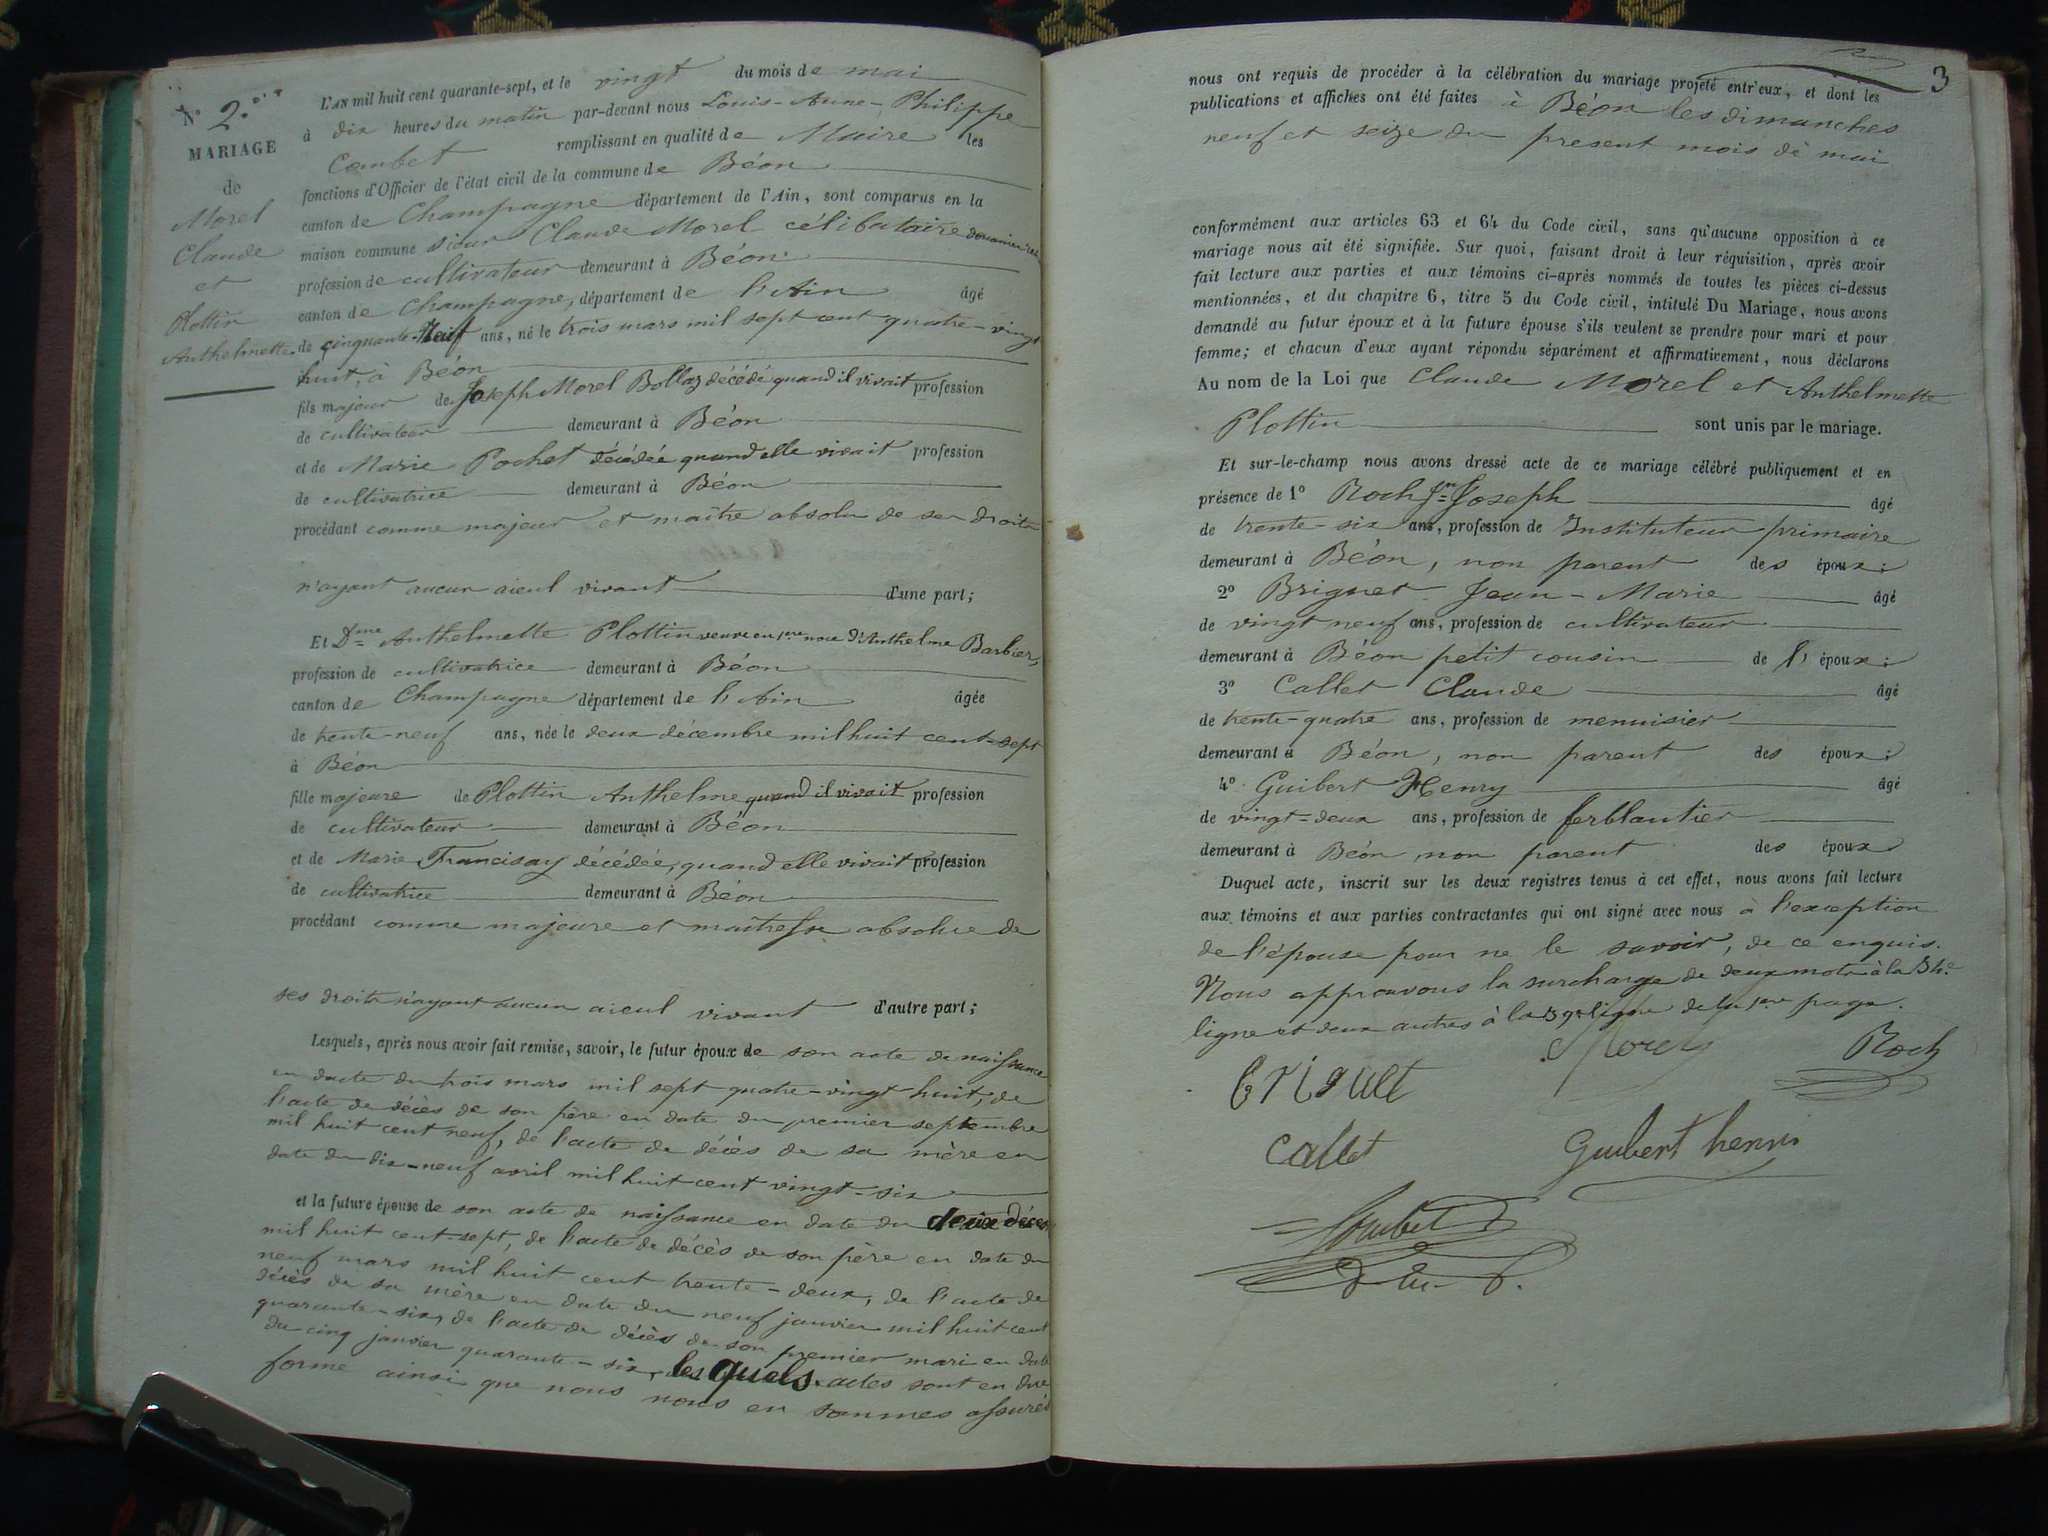 N° 2.
MARIAGE
de
Morel
Claude
et
Plottin
Anthelmette
L'AN mil huit cent quarante-sept, et le vingt du mois de mai
à dix heures du matin par-devant nous Louis-Anne-Philippe
Combet remplissant en qualité de Maire les
fonctions d'Officier de l'état civil de la commune de Béon
canton de Champagne département de l'Ain, sont comparus en la
maison commune sieur Claude Morel célibataire
profession de cultivateur demeurant à Béon
canton de Champagne, département de l'Ain âgé
de cinquante-Neuf ans, né le trois mars mil sept cent quatre-vingt
huit, à Béon
fils majeur de Joseph Morel Bollaz décédé quand il vivait profession
de cultivateur demeurant à Béon
et de Marie Pochet décédée quand elle vivait profession
de cultivatrice demeurant à Béon
procédant comme majeur et maître absolu de ses droits
n'ayant aucun aieul vivant d'une part;
Et Dme Anthelmette Plottin veuve en 1ères noce d'Anthelme Barbier,
profession de cultivatrice demeurant à Béon
canton de Champagne département de l'Ain âgée
de trente-neuf ans, née le deux décembre mil huit cent-sept
à Béon
fille majeure de Plottin Anthelme quand il vivait profession
de cultivateur demeurant à Béon
et de Marie Francisoy décédée, quand elle vivait profession
de cultivatrice demeurant à Béon
procédant comme majeure et maîtresse absolue de
ses droits n'ayant aucun aieul vivant d'autre part;
Lesquels, après nous avoir fait remise, savoir, le futur époux de son acte de naissance
en date du trois mars mil sept quatre-vingt-huit, de
l'acte de décès de son père en date du premier septembre
mil huit cent neuf, de l'acte de décès de sa mère en
date du dix-neuf avril mil huit cent vingt-six
et la future épouse de son acte de naissance en date du deux décem
mil huit cent-sept, de l'acte de décès de son père en date du
neuf mars mil huit cent trente-deux, de l'acte de
décès de sa mère en date du neuf janvier mil huit cent
quarante-six, de l'acte de décès de son premier mari en date
du cinq janvier quarante-six, les quels actes sont en due
forme ainsi que nous nous en sommes assurés
3
nous ont requis de procéder à la célébration du mariage projeté entr'eux, et dont les
publications et affiches ont été faites à Béon les dimanches
neuf et seize du present mois de mai
conformément aux articles 63 et 64 du Code civil, sans qu'aucune opposition à ce
mariage nous ait été signifiée. Sur quoi, faisant droit à leur réquisition, après avoir
fait lecture aux parties et aux témoins ci-après nommés de toutes les pièces ci-dessus
mentionnées, et du chapitre 6, titre 5 du Code civil, intitulé Du Mariage, nous avons
demandé au futur époux et à la future épouse s'ils veulent se prendre pour mari et pour
femme; et chacun d'eux ayant répondu séparément et affirmativement, nous déclarons
Au nom de la Loi que Claude Morel et Anthelmette
Plottin sont unis par le mariage.
Et sur-le-champ nous avons dressé acte de ce mariage célébré publiquement et en
présence de 1° Roch Jn Joseph âgé
de trente-six ans, profession de Instituteur primaire
demeurant à Béon, non parent des époux:
2° Briguet Jean-Marie âgé
de vingt neuf ans, profession de cultivateur
demeurant à Béon petit cousin de l' époux:
3° Callet Claude âgé
de trente-quatre ans, profession de menuisier
demeurant à Béon, non parent des époux:
4° Guibert Henry âgé
de vingt-deux ans, profession de ferblantier
demeurant à Béon, non parent des époux
Duquel acte, inscrit sur les deux registres tenus à cet effet, nous avons fait lecture
aux témoins et aux parties contractantes qui ont signé avec nous à l'exception
de l'épouse pour ne le savoir, de ce enquis.
Nous approuvons la surcharge de deux mots à la 34e
ligne et deux autres à la 39e ligne de la 1ere page.
Morel
Roch
briguet
Callet
Guibert henri
Combet